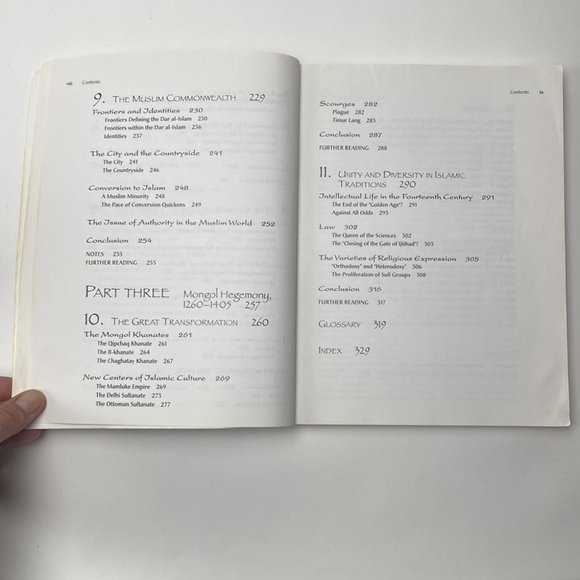 viii Contents
9. THE MUSLIM COMMONWEALTH 229
Frontiers and Identities 230
Frontiers Defining the Dar al-Islam 230
Frontiers within the Dar al-Islam 236
Identities 237
The City and the Countryside 241
The City 241
The Countryside 246
Conversion to Islam 248
A Muslim Minority 248
The Pace of Conversion Quickens 249
The Issue of Authority in the Muslim World 252
Conclusion 254
NOTES 255
FURTHER READING 255
PART THREE Mongol Hegemony,
1260–1405 257
10. THE GREAT TRANSFORMATION 260
The Mongol Khanates 261
The Qipchaq Khanate 261
The Il-khanate 264
The Chaghatay Khanate 267
New Centers of Islamic Culture 269
The Mamluke Empire 269
The Delhi Sultanate 273
The Ottoman Sultanate 277
Contents ix
Scourges 282
Plague 282
Timur Lang 283
Conclusion 287
FURTHER READING 288
11. UNITY AND DIVERSITY IN ISLAMIC
TRADITIONS 290
Intellectual Life in the Fourteenth Century 291
The End of the "Golden Age"? 291
Against All Odds 293
Law 302
The Queen of the Sciences 302
The "Closing of the Gate of Ijtihad"? 303
The Varieties of Religious Expression 305
"Orthodoxy" and "Heterodoxy" 306
The Proliferation of Sufi Groups 308
Conclusion 316
FURTHER READING 317
GLOSSARY 319
INDEX 329